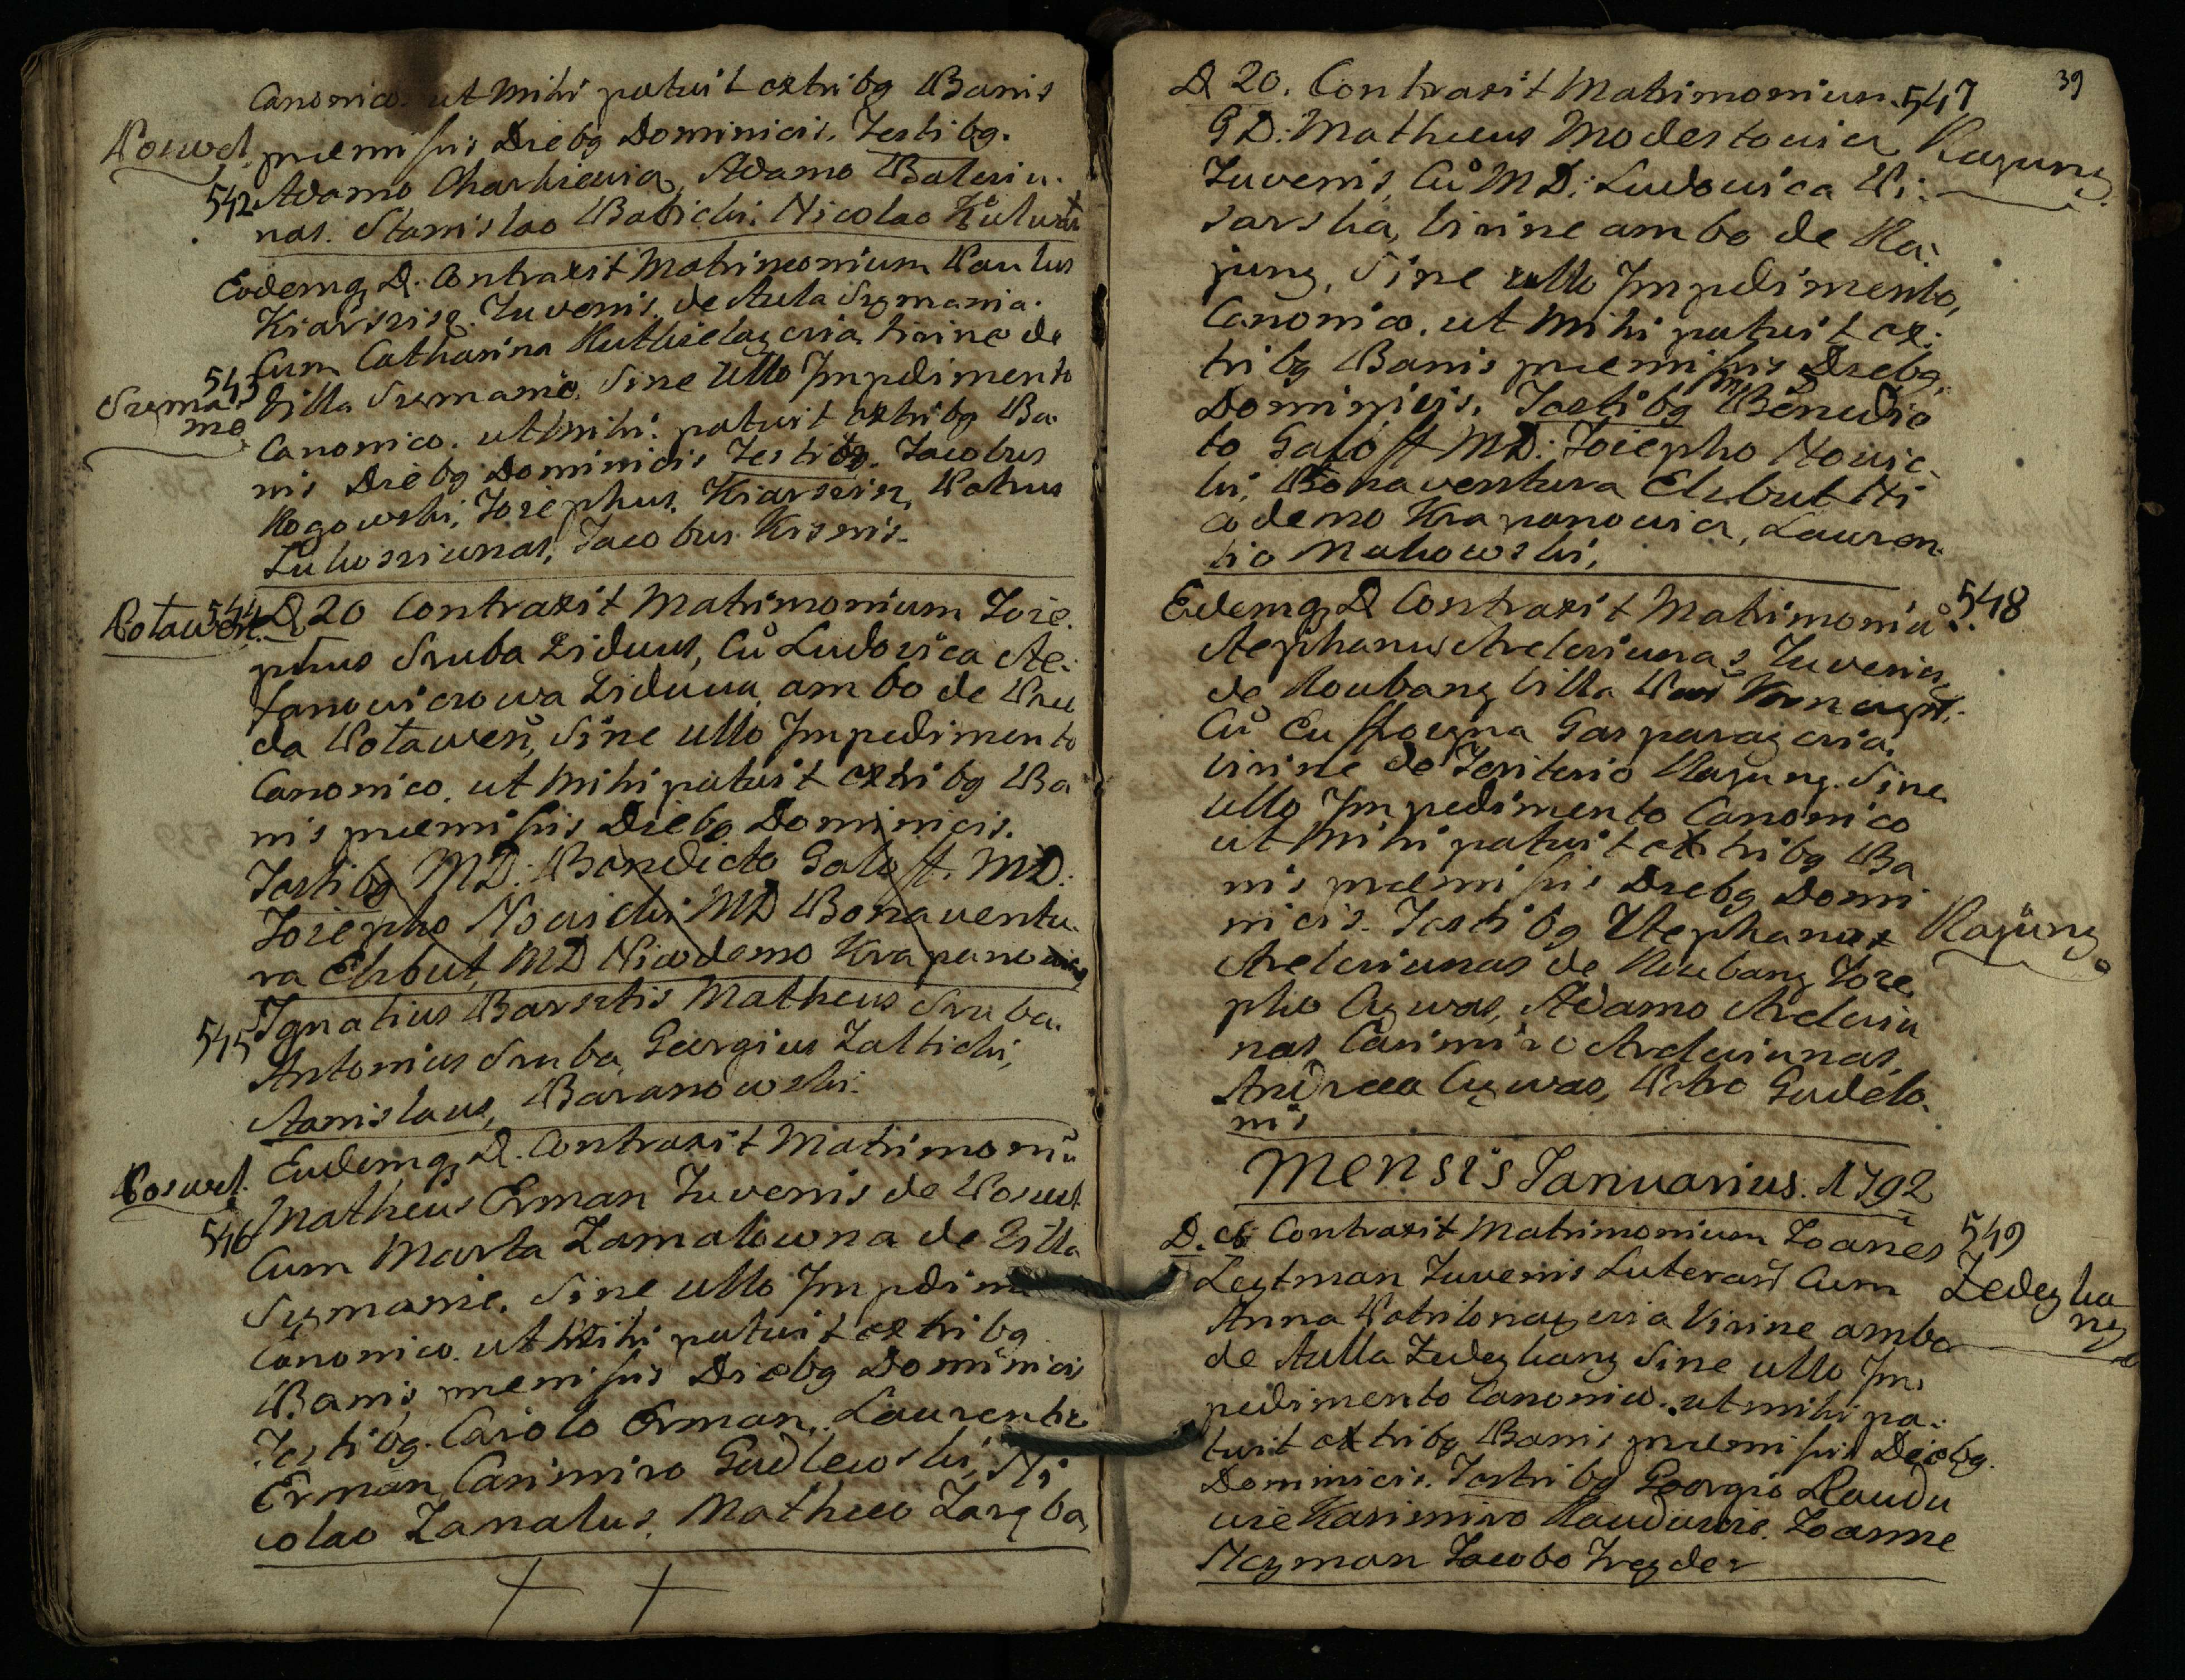 Canonico. ut Mihi patuit ex tribq Banis
Poswol. premissis Diebq Dominicis. Testibq.
542 Adamo Charkiewicz, Adamo Balciu-
nas. Stanislao Babicki. Nicolao
Eodemq D. Contraxit Matrimonium Paulus
Kiarszisz. Juvenis. de Aula Szymania.
Cum Catharina Rutkielayciа Virine de
543 Villa Szemanie. Sine Ullo Impdimento
Szema
nie
Canonico. ut Mihi. patuit ex tribq Ba
nis Diebq Dominicis Testibq. Jacobus
Rogowski, Josephus. Kiarszisz, Petrus
Lukosziunas, Jacobus Kisnis.
Potawen. 544 D 20 Contraxit Matrimonium Jose.
phus Sruba Viduus, Cu Ludovica Ste.
fanowiczowa Vidua, ambo de Prze
da Potawen, Sine ullo Impedimento
Canonico. ut Mihi patuit ex tribq Ba
nis premissis Diebq Dominicis.
Testibq MD: Benedicto Galofft. MD:
Josepho Nowicki MD Bonaventu-
ra Elzbut, MD Nicodemo Krapanowicz
545 Ignatius Barsztis Matheus Sruba.
Antonius Sruba, Georgius Zaltichi,
Stanislaus, Baranowski.
Poswol. Eodemq D. Contraxit Matrimoniu
546 Matheus Erman Juvenis de Poswol
Cum Marta Zamalowna de Villa
Szymanie. Sine ullo Impdime
Canonico. ut Mihi patuit ex tribq
Banis premissis Diebq Dominicis
Testibq. Carolo Erman, Laurentio
Erman, Casimiro Gudlewski, Ni
colao Zamalus, Matheo Zaręba,
39
D 20. Contraxit Matrimonium. 547
GD: Matheus Modestowicz Rajung
Juvenis, Cu MD: Ludovica Pi:
sarska, Virine ambo de Ra:
jung, Sine ullo Impdimento,
Canonico. ut Mihi patuit ex:
tribq Banis premissis Diebq,
Dominicis. Testibq MD Benedic
to Galofft MD: Josepho Nowic-
ki, Bonaventura Elzbut Ni
codemo Krapanowicz, Lauren-
tio Makowski,
Eodemq D Contraxit Matrimoniu. 548
Stephanus Arelciunas Juvenis,
de Roubany Villa
Cu Eufroegna Gasparaycia.
Virine de Teritorio Rajung. Sine
ullo Impedimento Canonico
ut Mihi patuit ex tribq Ba
nis premissis Diebq Domi
nicis. Testibq Stephanus Rajung
Arelciunas de Roubany Jose,
pho Czywas, Adamo Arelciu
nas, Casimiro Arelciunas,
Andrea Czywas, Petro Gudelo.
nis
Mensis Januarius. 1792
D. 6 Contraxit Matrimonium Joanes 549
Leytman Juvenis Luteran Cum Zedeyka
ny
Anna Petrilonaycia Virine ambo
de Aulla Zedeykany Sine ullo Im
pedimento Canonico. ut mihi pa:
tuit ex tribq Banis premissis Diebq.
Dominicis. Testribq Georgio Raudu
wie Kasimiro Rauduwie. Joanne
Neyman Jacobo Freyder